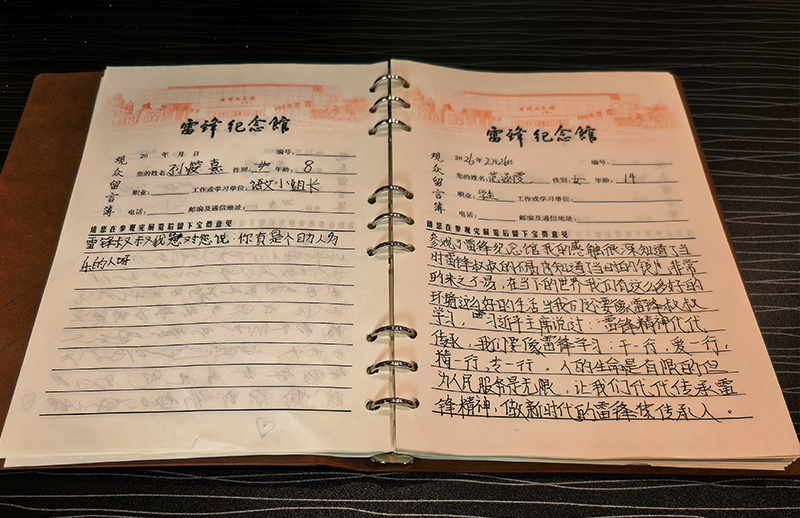 雷锋纪念馆
观众留言簿
20 年 月 日 编号:
您的姓名 孙 嘉 性别 女 年龄: 8
职业: 工作或学习单位: 语文小组长
电话: 邮编及通信地址:
请您在参观完展览后留下宝贵意见
雷锋叔叔我想对您说:你真是个助人为
乐的人呀
雷锋纪念馆
观众留言簿
2026年2月26日 编号:
您的姓名 范 霞 性别: 女 年龄: 14
职业: 学生 工作或学习单位:
电话: 邮编及通信地址:
请您在参观完展览后留下宝贵意见
参观了雷锋纪念馆我的感触很深知道了当
时雷锋叔叔的不易,也知道了当时的钱,非常
的来之不易,在当下的世界我们有这么多好的
环境这么好的生活当我们还要像雷锋叔叔
学习,习近平主席说过:雷锋精神代代
传承,我们要像雷锋学习:干一行,爱一行,
精一行,专一行。人的生命是有限的但
为人民服务是无限,让我们代代传承雷
锋精神,做新时代的雷锋 传承人。